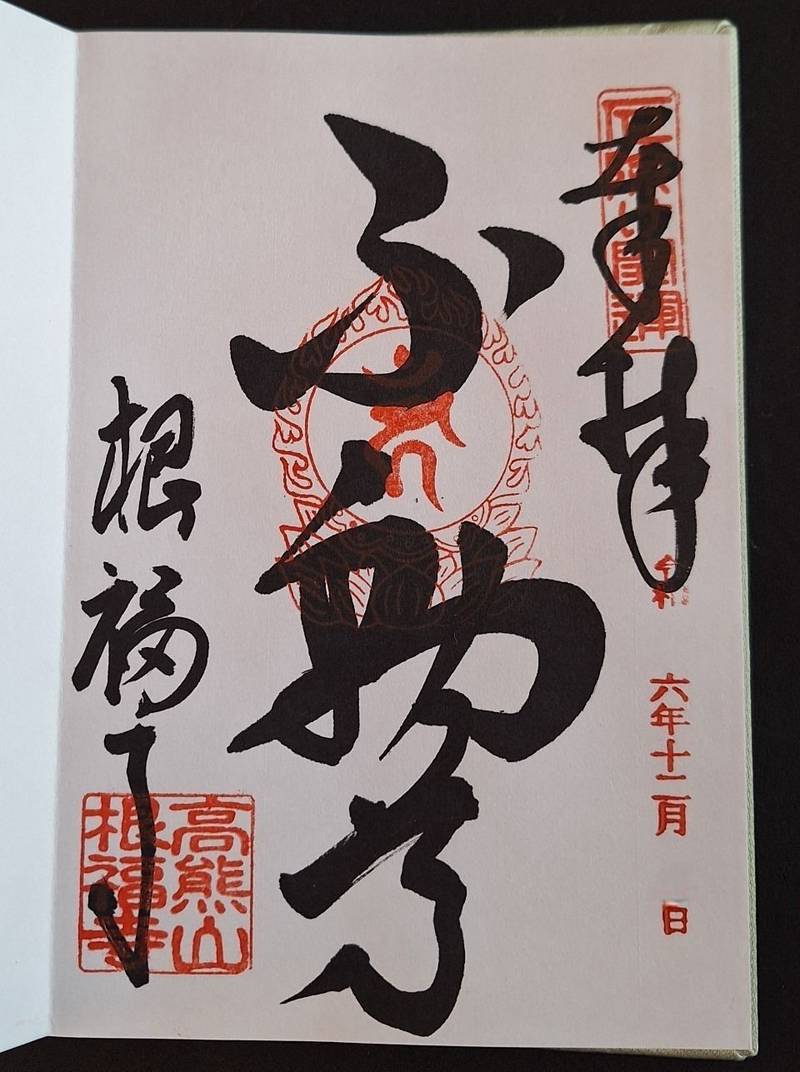 奉拝
令和六年十二月 日
不動尊
根福寺
高熊山
根福寺